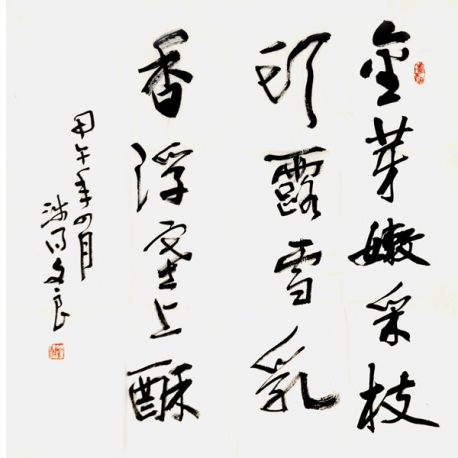 金芽嫩采枝
頭露雪乳
香浮塞上酥
甲午年四月
文良